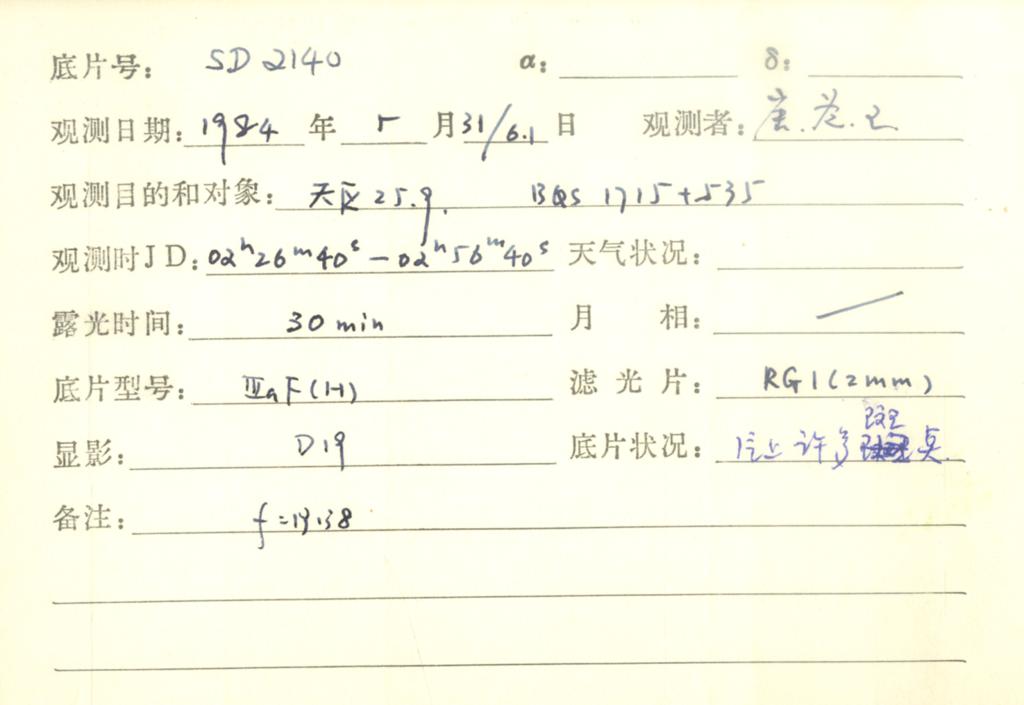 底片号: SD 2140 α: δ:
观测日期: 1984 年 5 月 31/6.1 日 观测者:
观测目的和对象: 天区 25.9. BQS 1715+535
观测时JD: 02ʰ26ᵐ40ˢ－02ʰ56ᵐ40ˢ 天气状况:
露光时间: 30 min 月 相: ／
底片型号: ⅢaF(H) 滤光片: RG1(2mm)
显影: D19 底片状况: 上许多斑点.
备注: f=19.38